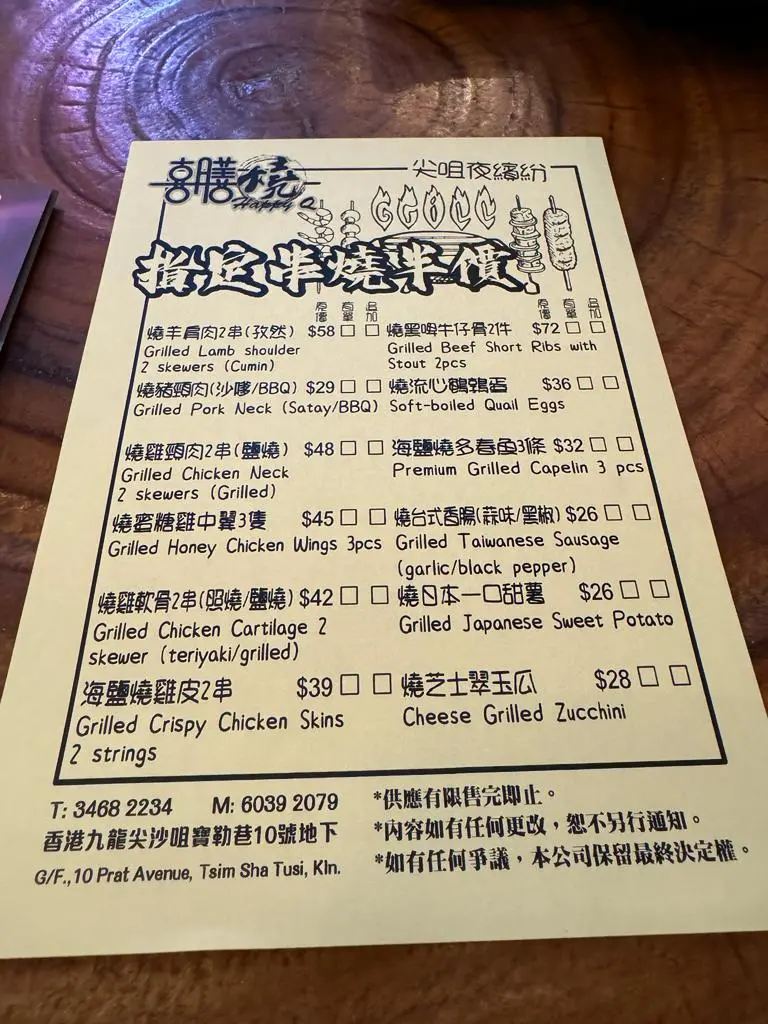 喜膳燒
Happy Q
尖咀夜繽紛
GRILL
指定串燒半價
原價 首單 追加 原價 首單 追加
燒羊肩肉2串(孜然) $58 □ □
Grilled Lamb shoulder
2 skewers (Cumin)
燒豬頸肉(沙嗲/BBQ) $29 □ □
Grilled Pork Neck (Satay/BBQ)
燒雞頸肉2串(鹽燒) $48 □ □
Grilled Chicken Neck
2 skewers (Grilled)
燒蜜糖雞中翼3隻 $45 □ □
Grilled Honey Chicken Wings 3pcs
燒雞軟骨2串(照燒/鹽燒) $42 □ □
Grilled Chicken Cartilage 2
skewer (teriyaki/grilled)
海鹽燒雞皮2串 $39 □ □
Grilled Crispy Chicken Skins
2 strings
燒黑啤牛仔骨2件 $72 □ □
Grilled Beef Short Ribs with
Stout 2pcs
燒流心鵪鶉蛋 $36 □ □
Soft-boiled Quail Eggs
海鹽燒多春魚3條 $32 □ □
Premium Grilled Capelin 3 pcs
燒台式香腸(蒜味/黑椒) $26 □ □
Grilled Taiwanese Sausage
(garlic/black pepper)
燒日本一口甜薯 $26 □ □
Grilled Japanese Sweet Potato
燒芝士翠玉瓜 $28 □ □
Cheese Grilled Zucchini
T: 3468 2234 M: 6039 2079
香港九龍尖沙咀寶勒巷10號地下
G/F.,10 Prat Avenue, Tsim Sha Tusi, Kln.
*供應有限售完即止。
*內容如有任何更改，恕不另行通知。
*如有任何爭議，本公司保留最終決定權。